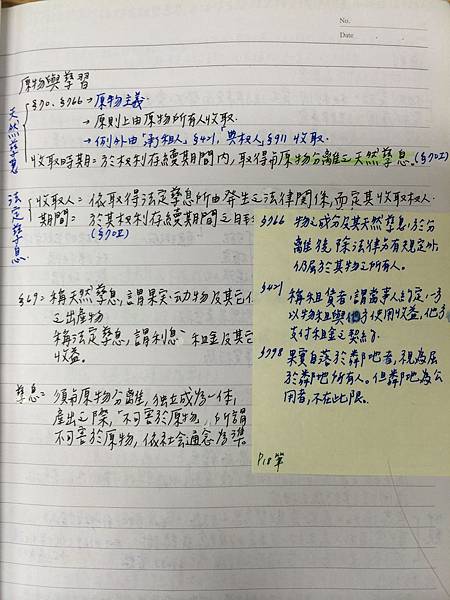 No.
Date
原物與孳習
天然孳息
§70、§766 → 原物主義.
→ 原則上由原物所有人收取.
→ 例外由「承租人」§421,「典权人」§911 收取.
收取時期=於权利存續期間內,取得與原物分離之天然孳息.(§70I)
法定孳息
收取人=依取得法定孳息所由發生之法律関係,而定其收取权人.
期間= 於其权利存續期間之日
(§70II)
§69= 稱天然孳息,謂果实、动物及其它
之出產物
稱法定孳息,謂利息、租金及其它
收益。
孳息= 須與原物分離,独立成為一体,
產出之際,「不可害於原物」,所謂
不可害於原物,依社會通念為準。
§766 物之成分及其天然孳息,於分
離後,除法律另有規定外,
仍屬於其物之所有人。
§421 稱租賃者,謂當事人約定,一方
以物租與他方使用收益,他方
支付租金之契約
§798 果實自落於鄰地者,視為屬
於鄰地所有人。但鄰地為公
用者,不在此限。
P18筆